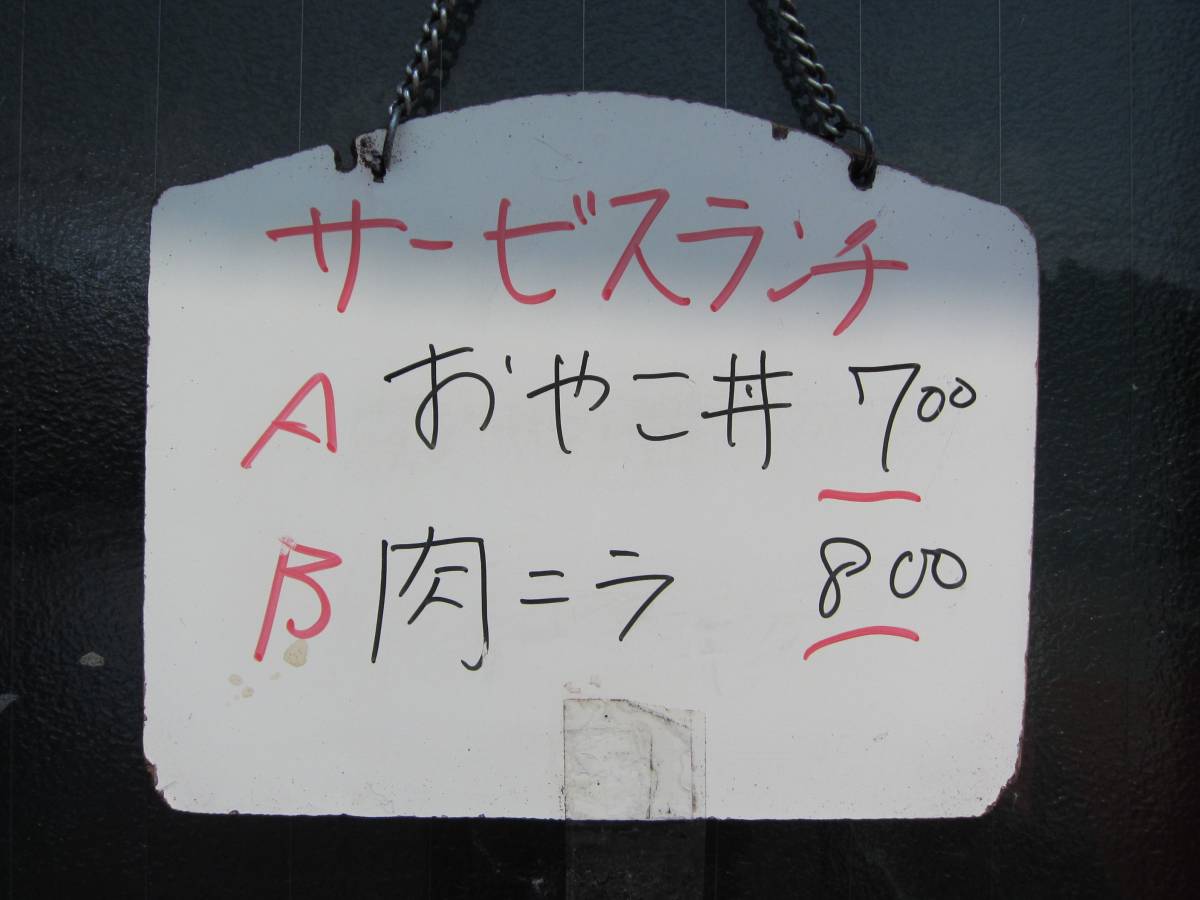 サービスランチ
A おやこ丼 700
B 肉ニラ 800